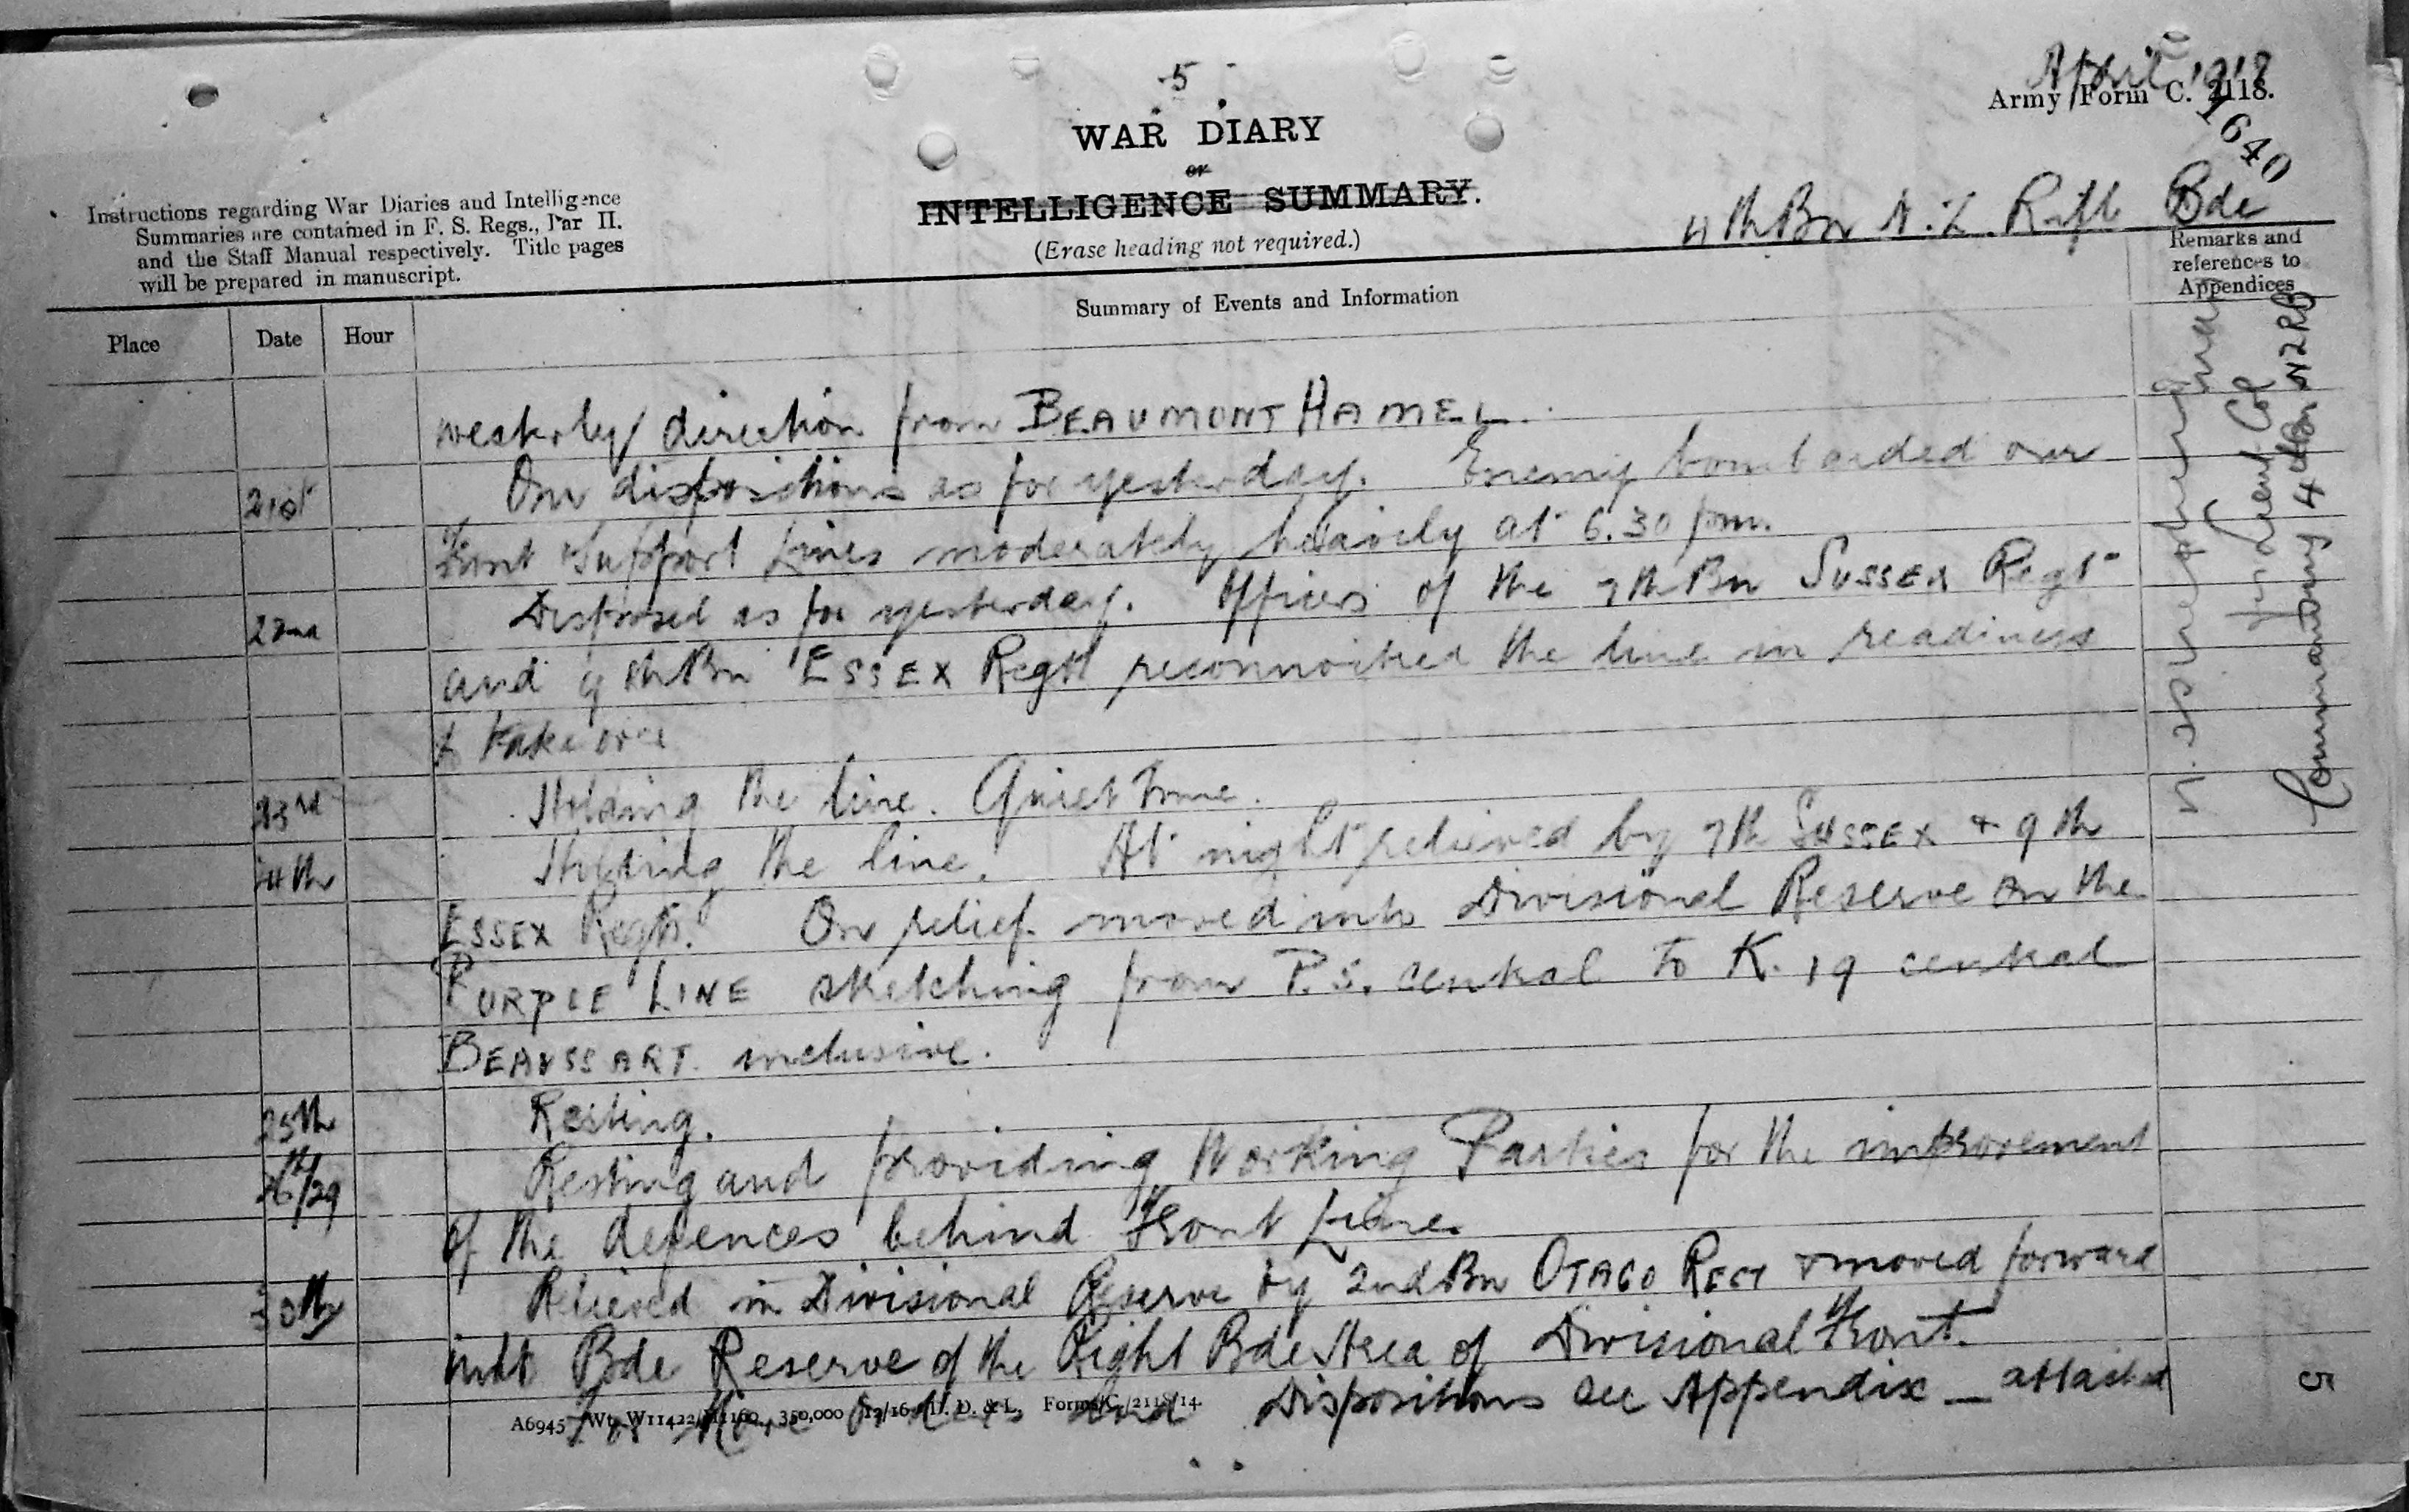 5
April 1918
Army Form C. 2118.
1640
WAR DIARY
or
INTELLIGENCE SUMMARY.
(Erase heading not required.)
Instructions regarding War Diaries and Intelligence
Summaries are contained in F. S. Regs., Par II.
and the Staff Manual respectively. Title pages
will be prepared in manuscript.
4th Bn N.Z. Rifle Bde
Place
Date
Hour
Summary of Events and Information
Remarks and
references to
Appendices
westerly direction from BEAUMONT HAMEL.
21st Our dispositions as for yesterday. Enemy bombarded our
Front & Support Lines moderately heavily at 6.30 pm.
22nd Disposed as for yesterday. Officers of the 7th Bn SUSSEX Regt
and 9th Bn ESSEX Regt reconnoitred the line in readiness
to take over
23rd Holding the line. Quiet time.
24th Holding the line. At night relieved by 7th SUSSEX & 9th
ESSEX Regts. On relief moved into Divisional Reserve on the
PURPLE LINE stretching from P.5. central to K.19 central
BEAUSSART inclusive.
25th Resting.
26th/29 Resting and providing Working Parties for the improvement
of the defences behind Front Line.
30th Relieved in Divisional Reserve by 2nd Bn OTAGO REGT & moved forward
into Bde Reserve of the Right Bde Area of Divisional Front.
For More orders and Dispositions see Appendix — attached
A6945 Wt. W11422/M1160 350,000 12/16 D. D. & L. Forms/C./2118/14.
Lieut Col
Commanding 4th Bn NZRB
5